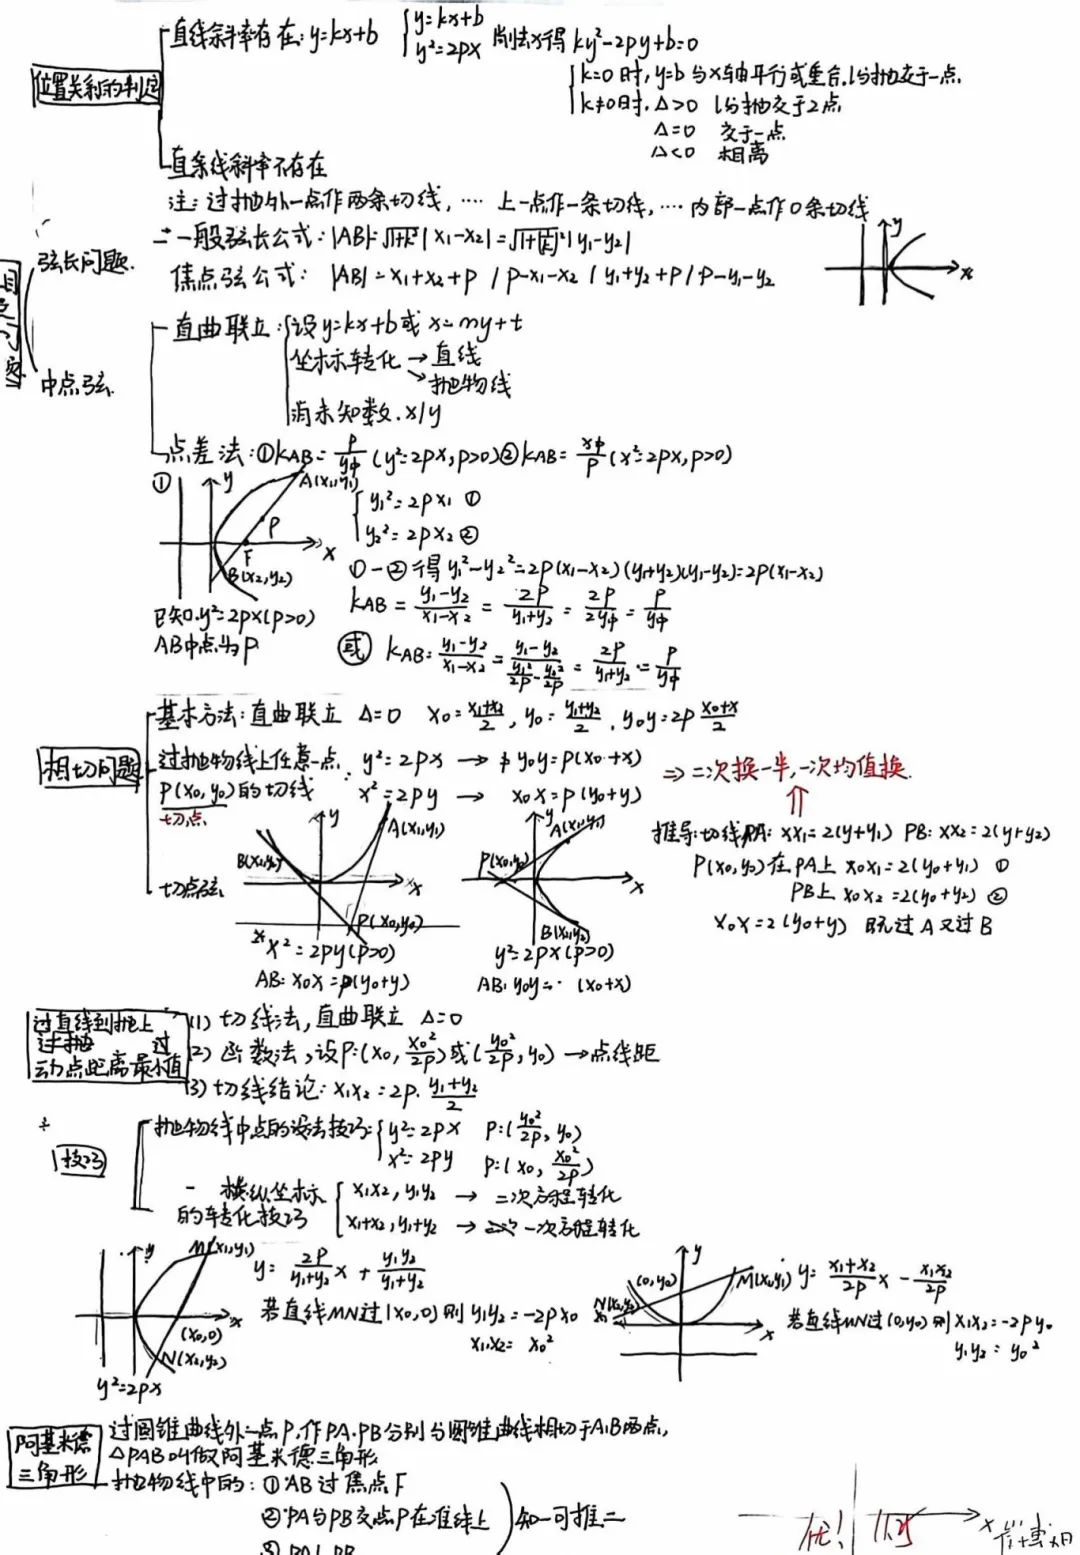 位置关系的判定
直线斜率存在: y=kx+b {y=kx+b y²=2px 削去x得 ky²-2py+b=0
{k=0时, y=b与x轴平行或重合. l与抛交于一点.
k≠0时. Δ>0 l与抛交于2点
Δ=0 交于一点
Δ<0 相离
直条线斜率不存在
注: 过抛外一点作两条切线, …… 上一点作一条切线, …… 内部一点作0条切线
弦长问题.
一般弦长公式: |AB|=√1+k² |x₁-x₂|=√1+(1/k)² |y₁-y₂|
焦点弦公式: |AB|=x₁+x₂+p / p-x₁-x₂ / y₁+y₂+p / p-y₁-y₂
y
x
中点弦.
直曲联立: {设y=kx+b或x=my+t
坐标转化→直线
→抛物线
消未知数. x/y
点差法: ①kAB=p/y中 (y²=2px, p>0) ②kAB=x中/p (x²=2px, p>0)
① y A(x₁,y₁) P F x B(x₂,y₂)
{y₁²=2px₁ ①
y₂²=2px₂ ②
①-②得 y₁²-y₂²=2p(x₁-x₂) (y₁+y₂)(y₁-y₂)=2p(x₁-x₂)
kAB=y₁-y₂/x₁-x₂=2p/y₁+y₂=2p/2y中=p/y中
已知.y²=2px(p>0)
AB中点为P
或 kAB=y₁-y₂/x₁-x₂=y₁-y₂/(y₁²/2p-y₂²/2p)=2p/y₁+y₂=p/y中
相切问题
基本方法: 直曲联立 Δ=0 x₀=x₁+x₂/2, y₀=y₁+y₂/2, y₀y=2p x₀+x/2
过抛物线上任意一点 y²=2px → y₀y=p(x₀+x)
P(x₀,y₀)的切线 x²=2py → x₀x=p(y₀+y)
切点
⇒二次换一半,一次均值换.
切点弦
y A(x₁,y₁) B(x₂,y₂) x P(x₀,y₀)
x²=2py(p>0)
AB: x₀x=p(y₀+y)
y A(x₁,y₁) P(x₀,y₀) x B(x₂,y₂)
y²=2px(p>0)
AB: y₀y= (x₀+x)
推导:切线PA: xx₁=2(y+y₁) PB: xx₂=2(y+y₂)
P(x₀,y₀)在PA上 x₀x₁=2(y₀+y₁) ①
PB上 x₀x₂=2(y₀+y₂) ②
x₀x=2(y₀+y) 既过A又过B
过直线到抛上
过抛 过
动点距离最小值
(1) 切线法, 直曲联立 Δ=0
(2) 函数法, 设P:(x₀, x₀²/2p)或(y₀²/2p, y₀)→点线距
(3) 切线结论: x₁x₂=2p. y₁+y₂/2
技巧
抛物线中点的设法技巧: {y²=2px P:(y₀²/2p, y₀)
x²=2py P:(x₀, x₀²/2p)
横纵坐标的转化技巧 {x₁x₂, y₁y₂ → 二次方程转化
x₁+x₂, y₁+y₂ → 一次方程转化
y M(x₁,y₁) x (x₀,0) N(x₂,y₂)
y²=2px
y=2p/y₁+y₂ x + y₁y₂/y₁+y₂
若直线MN过(x₀,0)则y₁y₂=-2px₀
x₁x₂=x₀²
y (0,y₀) M(x₁,y₁) N(x₂,y₂) x
y=x₁+x₂/2p x - x₁x₂/2p
若直线MN过(0,y₀)则x₁x₂=-2py₀
y₁y₂=y₀²
阿基米德三角形
过圆锥曲线外一点P,作PA.PB分别与圆锥曲线相切于A.B两点,
△PAB叫做阿基米德三角形
抛物线中的: ①AB过焦点F
②PA与PB交点P在准线上
③PA⊥PB
知一可推二
优!
x